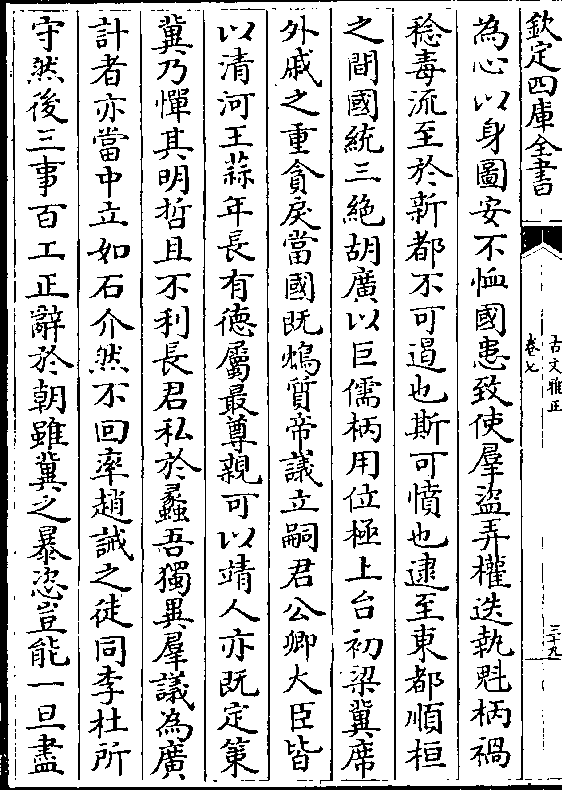 欽定四庫全書
古文雅正
卷七
三十九
為心以身圖安不恤國患致使羣盜弄權迭執魁柄禍
稔毒流至於新都不可遏也斯可憤也逮至東都順桓
之間國統三絶胡廣以巨儒柄用位極上台初梁冀席
外戚之重貪戾當國既鴆質帝議立嗣君公卿大臣皆
以清河王蒜年長有德屬最尊親可以靖人亦既定策
冀乃憚其明哲且不利長君私於蠡吾獨異羣議為廣
計者亦當中立如石介然不回率趙誡之徒同李杜所
守然後三事百工正辭於朝雖冀之暴恣豈能一旦盡